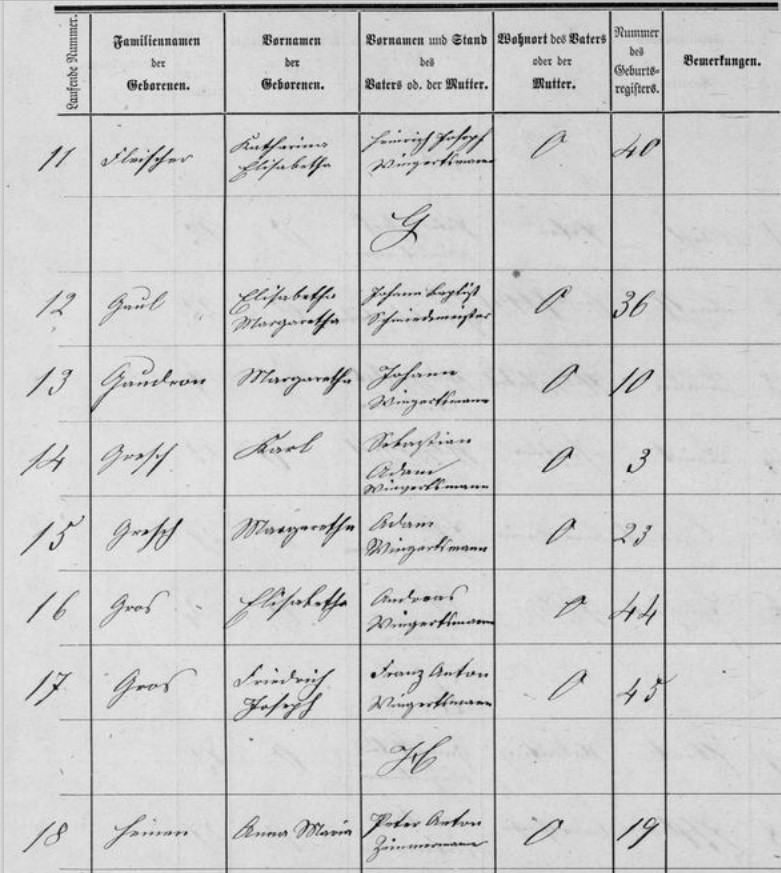 Laufende Nummer.
Familiennamen der Geborenen.
Vornamen der Geborenen.
Vornamen und Stand des Vaters od. der Mutter.
Wohnort des Vaters oder der Mutter.
Nummer des Geburts=registers.
Bemerkungen.
11 Fleischer Katharina Heinrich Joseph O 40
Elisabetha Wingertsmann
G
12 Gaul Elisabetha Johann Baptist O 36
Margaretha Schmiedmeister
13 Gaudron Margaretha Johann O 10
Wingertsmann
14 Gresch Karl Sebastian O 3
Adam
Wingertsmann
15 Gresch Margaretha Adam O 23
Wingertsmann
16 Gros Elisabetha Andreas O 44
Wingertsmann
17 Gros Friedrich Franz Anton O 45
Joseph Wingertsmann
H
18 Heinen Anna Maria Peter Anton O 19
Zimmermann